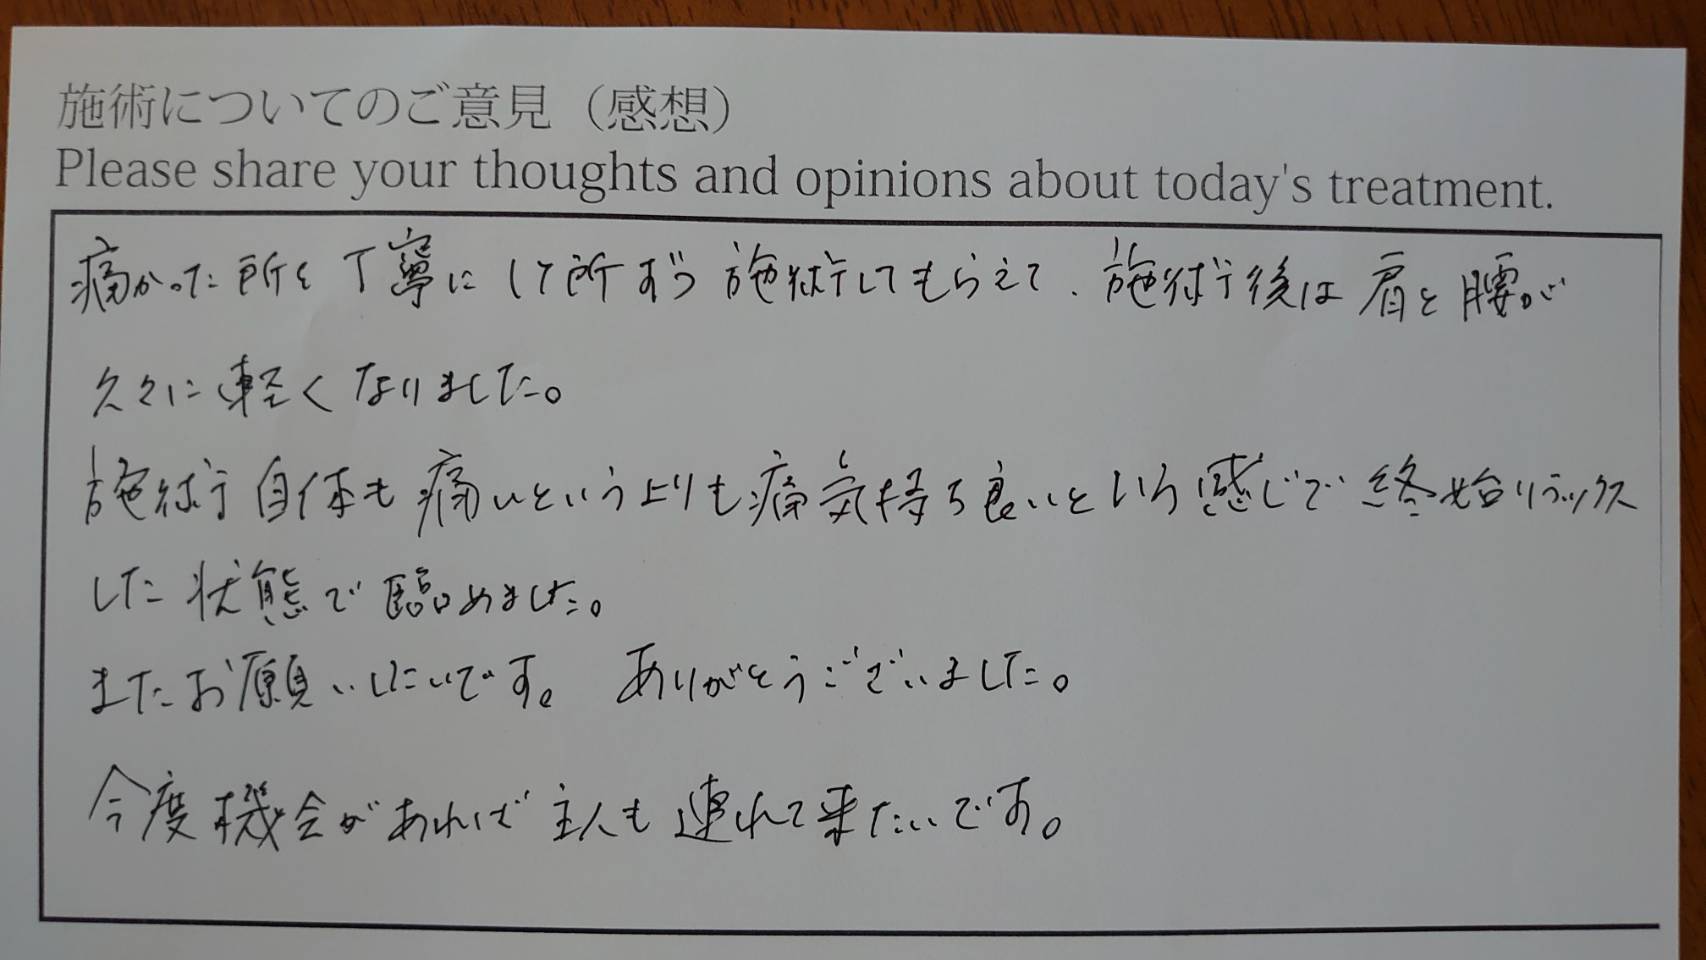 施術についてのご意見（感想）
Please share your thoughts and opinions about today's treatment.
痛かった所を丁寧に1ヶ所ずつ施術してもらえて、施術後は肩と腰が
久々に軽くなりました。
施術自体も痛いというよりも痛気持ち良いという感じで終始リラックス
した状態で臨めました。
またお願いしたいです。ありがとうございました。
今度機会があれば主人も連れて来たいです。